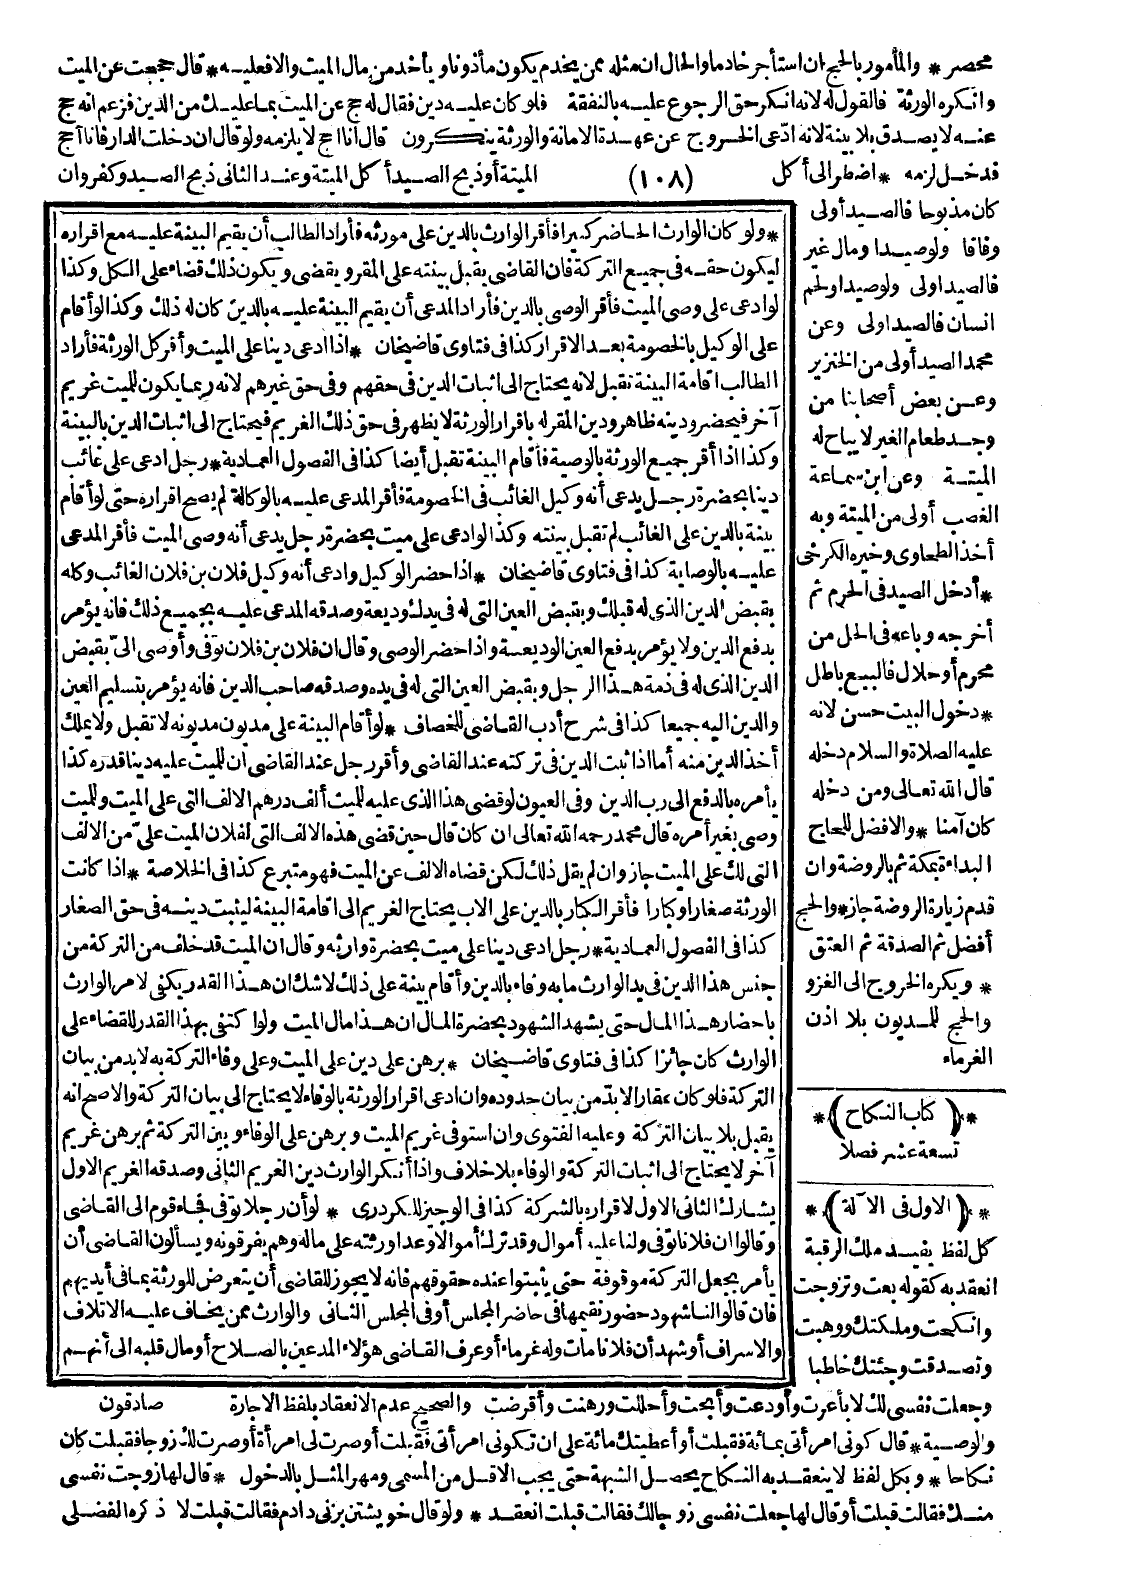 محصر * والمأمور بالحج ان استأجر خادما والحال ان مثله ممن يخدم يكون مأذونا ويأخذ من مال الميت والافعليه * قال حججت عن الميت
وانكره الورثة فالقول له لانه انكر حق الرجوع عليه بالنفقة فلو كان عليه دين فقال له حج عن الميت بما عليك من الدين فزعم انه حج
عنه لا يصدق بلا بينة لانه ادعى الخروج عن عهدة الامانة والورثة ينكرون قال انا احج لا يلزمه ولو قال ان دخلت الدار فانا أحج
فدخل لزمه * اضطر الى أكل (١٠٨) الميتة أو ذبح الصيد أكل الميتة وعند الثانى ذبح الصيد وكفر وان
كان مذبوحا فالصيد أولى
وفاقا ولو صيدا ومال غير
فالصيد اولى ولو صيدا ولحم
انسان فالصيد اولى وعن
محمد الصيد أولى من الخنزير
وعن بعض أصحابنا من
وجد طعام الغير لا يباح له
الميتة وعن ابن سماعة
الغصب أولى من الميتة وبه
أخذ الطحاوى وخيره الكرخى
* أدخل الصيد فى الحرم ثم
أخرجه وباعه فى الحل من
محرم أو حلال فالبيع باطل
* دخول البيت حسن لانه
عليه الصلاة والسلام دخله
قال الله تعالى ومن دخله
كان آمنا * والافضل للحاج
البداءة بمكة ثم بالروضة وان
قدم زيارة الروضة جاز * والحج
أفضل ثم الصدقة ثم العتق
* ويكره الخروج الى الغزو
والحج للمديون بلا اذن
الغرماء
* ﴿ كتاب النكاح ﴾ *
تسعة عشر فصلا
* ﴿ الاول فى الآلة ﴾ *
كل لفظ يفيد ملك الرقبة
انعقد به كقوله بعت وتزوجت
وانكحت وملكتك ووهبت
وتصدقت وجئتك خاطبا
* ولو كان الوارث الحاضر كبيرا فأقر الوارث بالدين على مورثه فأراد الطالب أن يقيم البينة عليه مع اقراره
ليكون حقه فى جميع التركة فان القاضى يقبل بينته على المقر ويقضى ويكون ذلك قضاء على الكل وكذا
لو ادعى على وصى الميت فأقر الوصى بالدين فأراد المدعى أن يقيم البينة عليه بالدين كان له ذلك وكذا لو أقام
على الوكيل بالخصومة بعد الاقرار كذا فى فتاوى قاضيخان * اذا ادعى دينا على الميت وأقر كل الورثة فأراد
الطالب اقامة البينة تقبل لانه يحتاج الى اثبات الدين فى حقهم وفى حق غيرهم لانه ربما يكون للميت غريم
آخر فيحضر ودينه ظاهر ودين المقر له باقرار الورثة لا يظهر فى حق ذلك الغريم فيحتاج الى اثبات الدين بالبينة
وكذا اذا أقر جميع الورثة بالوصية فأقام البينة تقبل أيضا كذا فى الفصول العمادية * رجل ادعى على غائب
دينا بحضرة رجل يدعى أنه وكيل الغائب فى الخصومة فأقر المدعى عليه بالوكالة لم يصح اقراره حتى لو أقام
بينة بالدين على الغائب لم تقبل بينته وكذا لو ادعى على ميت بحضرة رجل يدعى أنه وصى الميت فأقر المدعى
عليه بالوصاية كذا فى فتاوى قاضيخان * اذا حضر الوكيل وادعى أنه وكيل فلان بن فلان الغائب وكله
بقبض الدين الذى له قبلك وبقبض العين التى له فى يدك وديعة وصدقه المدعى عليه بجميع ذلك فانه يؤمر
بدفع الدين ولا يؤمر بدفع العين الوديعة واذا حضر الوصى وقال ان فلان بن فلان توفى وأوصى الىّ بقبض
الدين الذى له فى ذمة هذا الرجل وبقبض العين التى له فى يده وصدقه صاحب الدين فانه يؤمر بتسليم العين
والدين اليه جميعا كذا فى شرح أدب القاضى للخصاف * لو أقام البينة على مديون مديونه لا تقبل ولا يملك
أخذ الدين منه أما اذا ثبت الدين فى تركته عند القاضى وأقر رجل عند القاضى أن للميت عليه دينا قدره كذا
يأمره بالدفع الى رب الدين وفى العيون لو قضى هذا الذى عليه للميت ألف درهم الالف التى على الميت وللميت
وصى بغير أمره قال محمد رحمه الله تعالى ان كان قال حين قضى هذه الالف التى لفلان الميت علىّ من الالف
التى لك على الميت جاز وان لم يقل ذلك لكن قضاه الالف عن الميت فهو متبرع كذا فى الخلاصة * اذا كانت
الورثة صغارا وكبارا فأقر الكبار بالدين على الاب يحتاج الغريم الى اقامة البينة ليثبت دينه فى حق الصغار
كذا فى الفصول العمادية * رجل ادعى دينا على ميت بحضرة وارثه وقال ان الميت قد خلف من التركة من
جنس هذا الدين فى يد الوارث ما به وفاء بالدين وأقام بينة على ذلك لا شك ان هذا القدر يكفى لامر الوارث
باحضار هذا المال حتى يشهد الشهود بحضرة المال ان هذا مال الميت ولو اكتفى بهذا القدر للقضاء على
الوارث كان جائزا كذا فى فتاوى قاضيخان * برهن على دين على الميت وعلى وفاء التركة به لابد من بيان
التركة فلو كان عقارا لابد من بيان حدوده وان ادعى اقرار الورثة بالوفاء لا يحتاج الى بيان التركة والاصح انه
يقبل بلا بيان التركة وعليه الفتوى وان استوفى غريم الميت وبرهن على الوفاء وبين التركة ثم برهن غريم
آخر لا يحتاج الى اثبات التركة والوفاء بلا خلاف واذا أنكر الوارث دين الغريم الثانى وصدقه الغريم الاول
يشارك الثانى الاول لاقراره بالشركة كذا فى الوجيز للكردرى * لو أن رجلا توفى فجاء قوم الى القاضى
وقالوا ان فلانا توفى ولنا عليه أموال وقد ترك أموالا وعدا ورثته على ماله وهم يفرقونه ويسألون القاضى أن
يأمر بجعل التركة موقوفة حتى يثبتوا عنده حقوقهم فانه لا يجوز للقاضى أن يتعرض للورثة بما فى أيديهم
فان قالوا لنا شهود حضور نقيمها فى حاضر المجلس أو فى المجلس الثانى والوارث ممن يخاف عليه الاتلاف
والاسراف أو شهد أن فلانا مات وله غرماء أو عرف القاضى هؤلاء المدعين بالصلاح أو مال قلبه الى أنهم
صادقون
وجعلت نفسى لك لا بأعرت وأودعت وأبحت وأحللت ورهنت وأقرضت والصحيح عدم الانعقاد بلفظ الاجارة
والوصية * قال كونى امرأتى بمائة فقبلت أو أعطيتك مائة على ان تكونى امرأتى فقبلت أو صرت لى امرأة أو صرت لك زوجا فقبلت كان
نكاحا * وبكل لفظ لا ينعقد به النكاح يحصل الشبهة حتى يجب الاقل من المسمى ومهر المثل بالدخول * قال لها زوجت نفسى
منك فقالت قبلت أو قال لها جعلت نفسى زوجا لك فقالت قبلت انعقد * ولو قال خويشتن بزنى دادم فقالت قبلت لا ذكره الفضلى